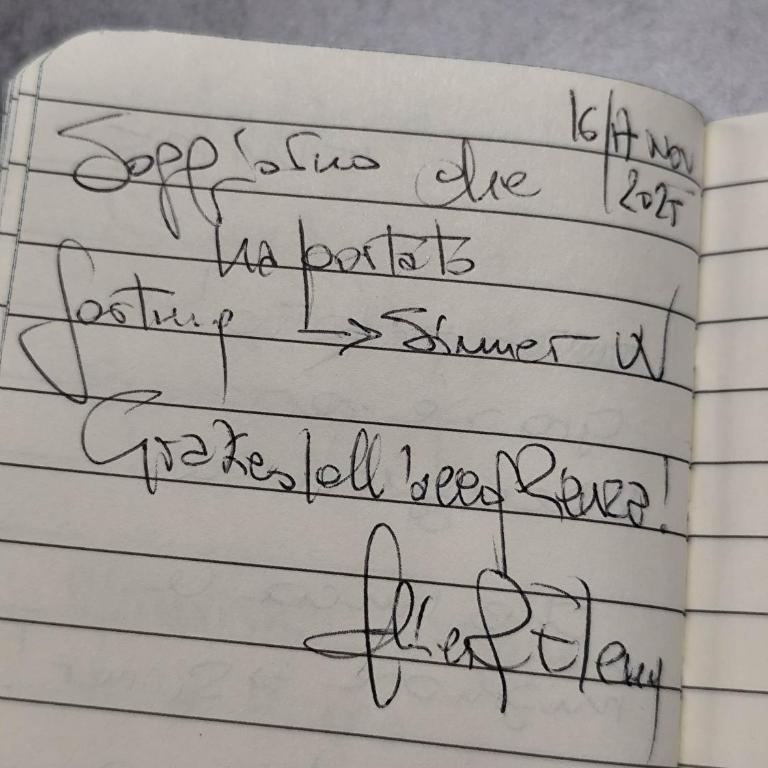 16/17 Nov
2025
Soggiorno che
ha portato
fortuna → Sinner W
Grazies all'accoglienza!